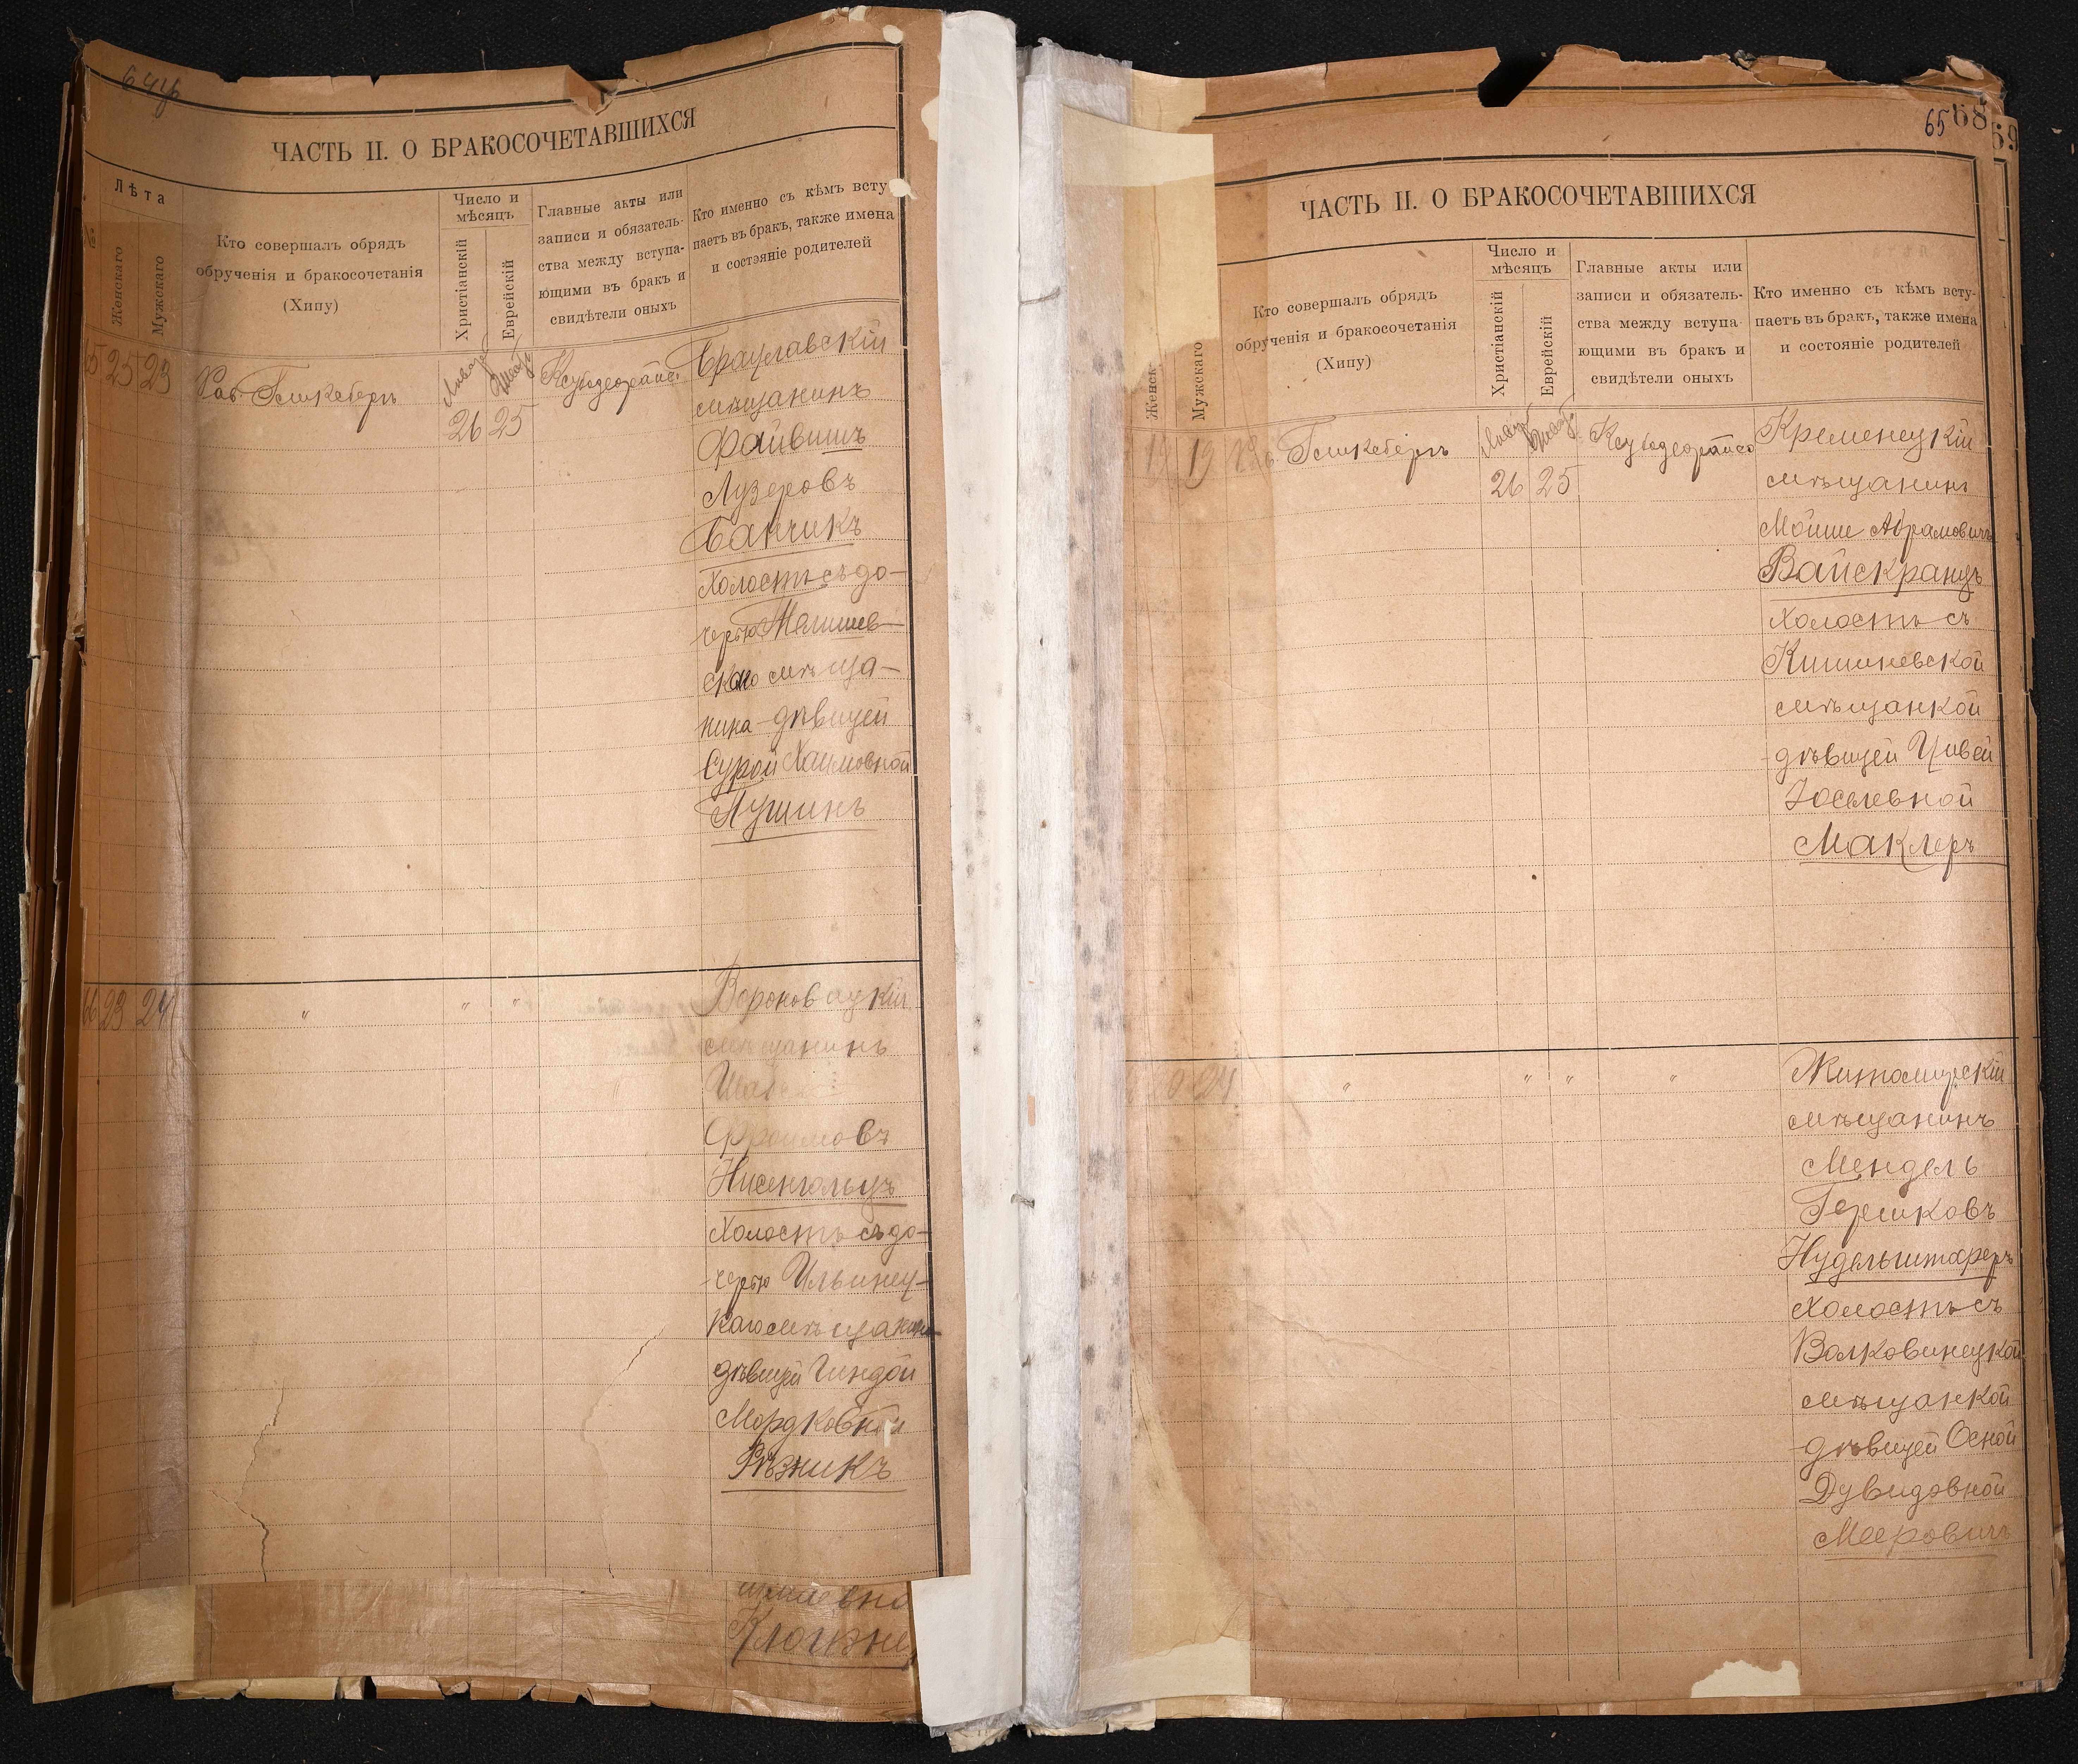 ЧАСТЬ II. О БРАКОСОЧЕТАВШИХСЯ
№
Лѣта
Женскаго
Мужскаго
Кто совершалъ обрядъ
обрученія и бракосочетанія
(Хипу)
Число и
мѣсяцъ
Христіанскій
Еврейскій
Главные акты или
записи и обязатель-
ства между вступа-
ющими въ бракъ и
свидѣтели оныхъ
Кто именно съ кѣмъ всту
паетъ въ бракъ, также имена
и состояніе родителей
25 23
26 25
Брацлавскій
мѣщанинъ
Файвишъ
Лузеровъ
Банчикъ
холостъ съ до-
черью
мѣща-
нина дѣвицей
Сурой Хаимовной
23 24 " " "
мѣщанинъ
Фроимовъ
Нисенгольцъ
холостъ съ до-
черью Ильинец-
каго мѣщанина
дѣвицей Гиндой
Мордковной
Рѣзникъ
65 68
69
ЧАСТЬ II. О БРАКОСОЧЕТАВШИХСЯ
Женск
Мужскаго
Кто совершалъ обрядъ
обрученія и бракосочетанія
(Хипу)
Число и
мѣсяцъ
Христіанскій
Еврейскій
Главные акты или
записи и обязатель-
ства между вступа
ющими въ бракъ и
свидѣтели оныхъ
Кто именно съ кѣмъ всту-
паетъ въ бракъ, также имена
и состояніе родителей
19
26 25
Кременецкій
мѣщанинъ
Мойше Абрамовичъ
Вайскранцъ
холостъ съ
Кишиневской
мѣщанкой
дѣвицей Цивей
Іоселевной
Маклеръ
24 " " " "
Житомирскій
мѣщанинъ
Мендель
Гершковъ
Нудельштареръ
холостъ съ
Волковинецкой
мѣщанкой
дѣвицей Осной
Дувидовной
Мееровичъ